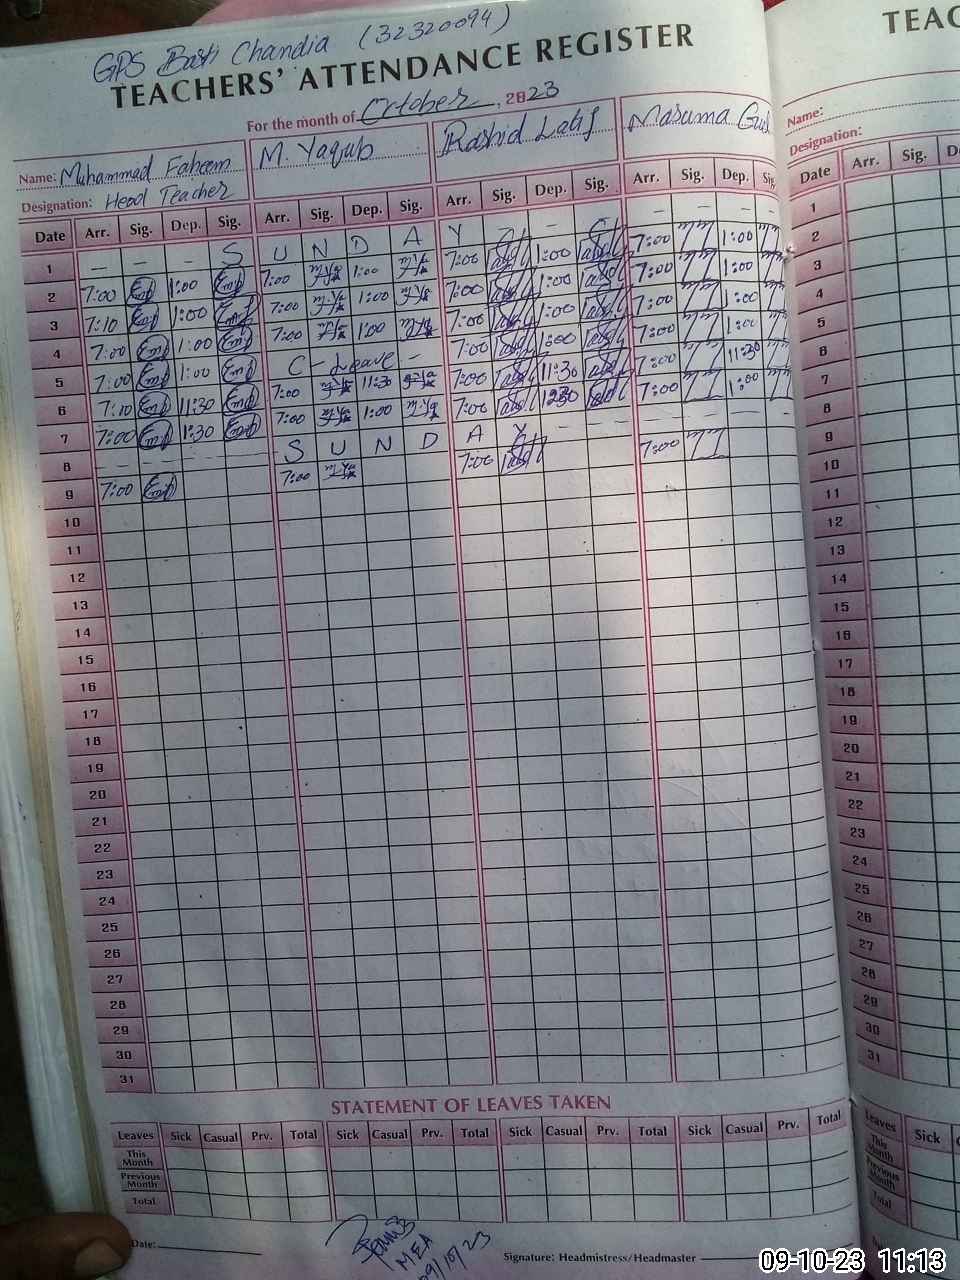 GPS Basti Chandia (32320094)
TEACHERS' ATTENDANCE REGISTER
For the month of October, 2023
Name: Muhammad Faheem M. Yaqub Rashid Latif Masuma Gul
Designation: Head Teacher
Date Arr. Sig. Dep. Sig. Arr. Sig. Dep. Sig. Arr. Sig. Dep. Sig. Arr. Sig. Dep. Sig.
1 - - - S U N D A Y - - - - -
2 7:00 1:00 7:00 1:00 7:00 1:00 7:00 1:00
3 7:10 1:00 7:00 1:00 7:00 1:00 7:00 1:00
4 7:00 1:00 7:00 1:00 7:00 1:00 7:00 1:00
5 7:00 1:00 C - Leave - 7:00 1:00 7:00 1:00
6 7:10 11:30 7:00 11:30 7:00 11:30 7:00 11:30
7 7:00 1:30 7:00 1:00 7:00 1230 7:00 1:00
8 - - - - S U N D A Y - - - - -
9 7:00 7:00 7:00 7:00
10
11
12
13
14
15
16
17
18
19
20
21
22
23
24
25
26
27
28
29
30
31
STATEMENT OF LEAVES TAKEN
Leaves Sick Casual Prv. Total Sick Casual Prv. Total Sick Casual Prv. Total Sick Casual Prv. Total
This Month
Previous Month
Total
MEA
09/10/23
Date:
Signature: Headmistress/Headmaster
TEAC
Name:
Designation:
Date Arr. Sig. D
1
2
3
4
5
6
7
8
9
10
11
12
13
14
15
16
17
18
19
20
21
22
23
24
25
26
27
28
29
30
31
Leaves Sick
This Month
Previous Month
Total
09-10-23 11:13